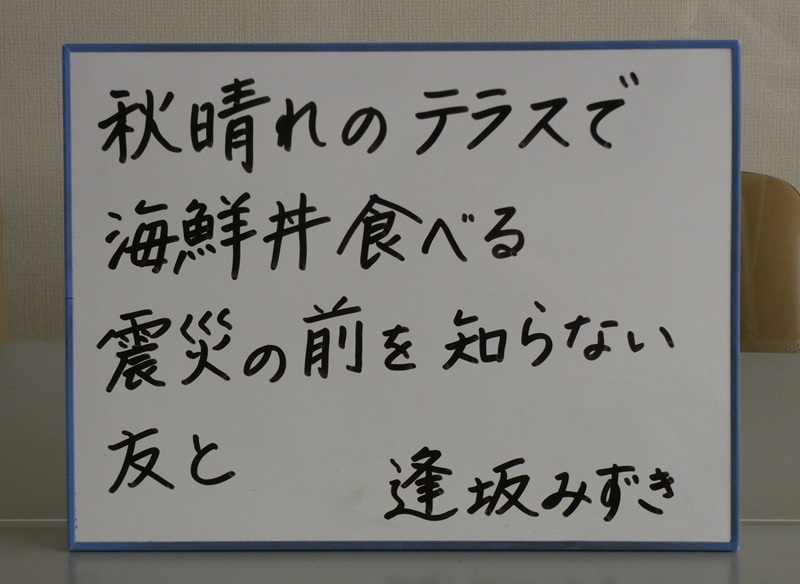 秋晴れのテラスで
海鮮丼食べる
震災の前を知らない
友と
逢坂みずき